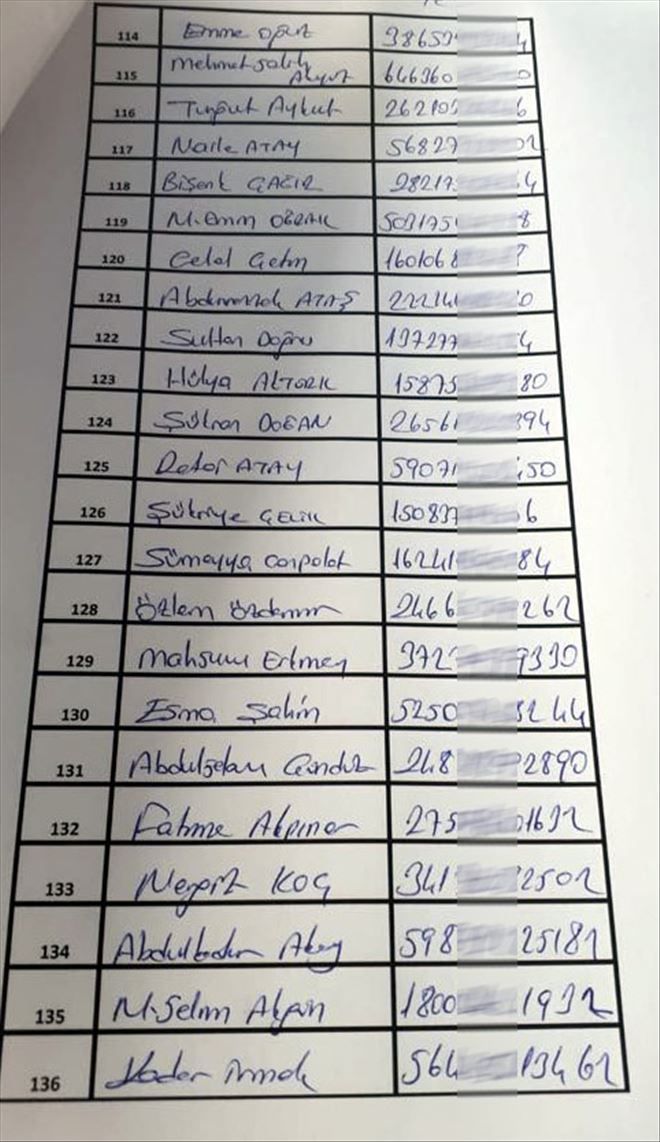 114 Emine Oğuz 38653 4
115 Mehmet Salih Akyüz 646360 0
116 Turgut Aykut 262103 6
117 Naile ATAY 56827 02
118 Bişenk ÇAĞIR 28217 4
119 M. Emin 5031751 8
120 Celal Çetin 1601068
121 ATAŞ 22214 0
122 Sultan Doğru 137277 4
123 Hülya ALTÜRK 15875 80
124 Şükran DOĞAN 2656 394
125 ATAY 5907 50
126 Şükriye ÇELİK 150837 6
127 Sümeyya Canpolat 16241 84
128 Özlem Özdemir 2466 262
129 Mahsum Ertmen 372 9330
130 Esma Şahin 5250 3244
131 Abdulselam Gündüz 248 2890
132 Fatma Akpınar 275 01632
133 KOÇ 341 2502
134 598 25182
135 M. Selim 1800 1932
136 Kader Irmak 564 13462